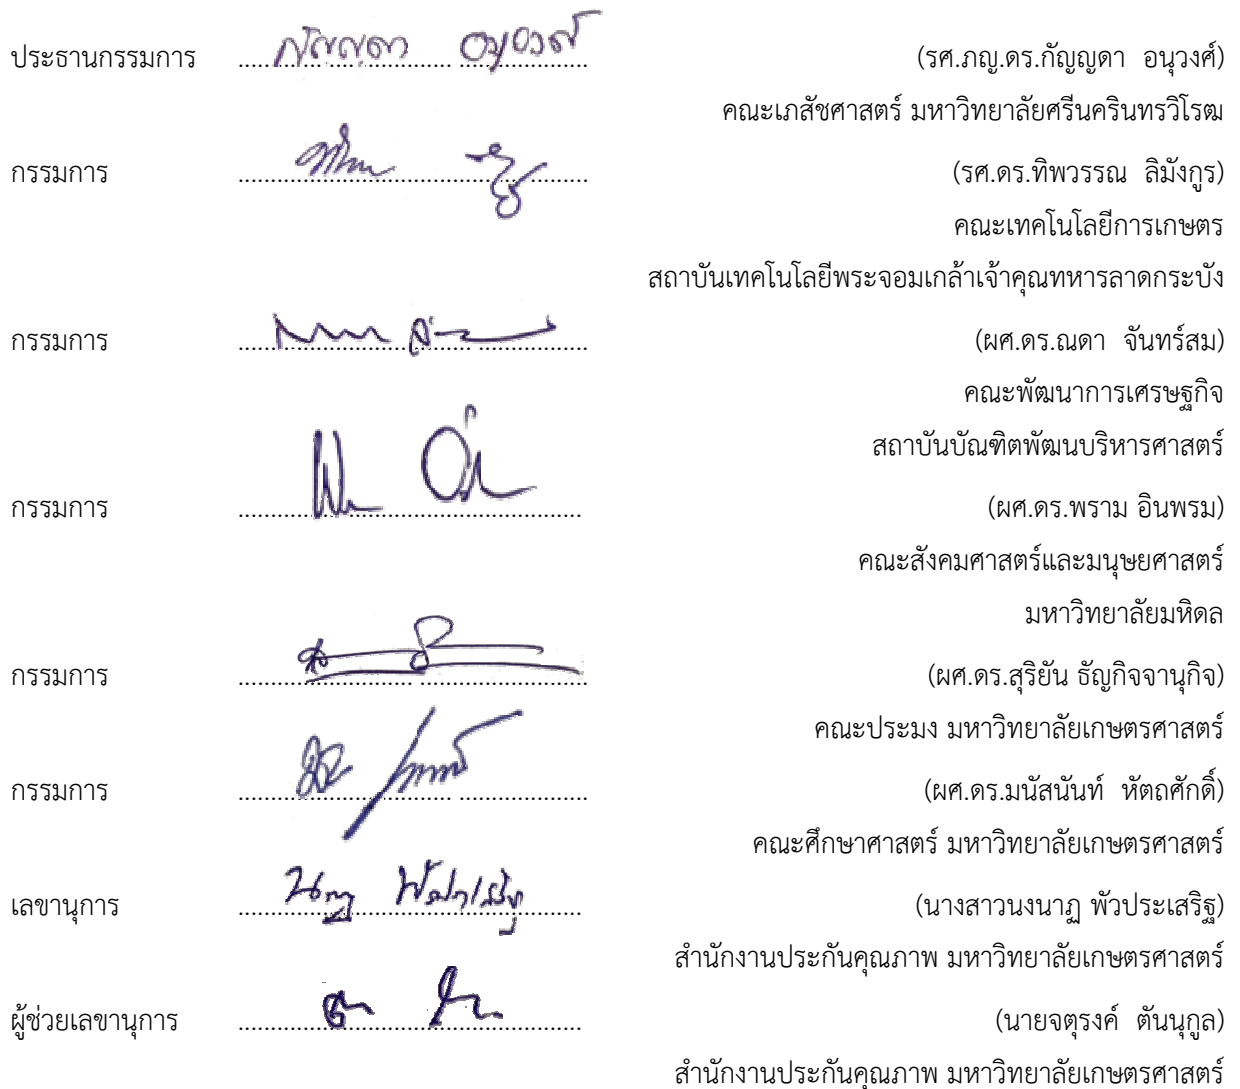 ประธานกรรมการ กัญญดา อนุวงศ์ (รศ.ภญ.ดร.กัญญดา อนุวงศ์)
คณะเภสัชศาสตร์ มหาวิทยาลัยศรีนครินทรวิโรฒ
กรรมการ (รศ.ดร.ทิพวรรณ ลิมังกูร)
คณะเทคโนโลยีการเกษตร
สถาบันเทคโนโลยีพระจอมเกล้าเจ้าคุณทหารลาดกระบัง
กรรมการ (ผศ.ดร.ณดา จันทร์สม)
คณะพัฒนาการเศรษฐกิจ
สถาบันบัณฑิตพัฒนบริหารศาสตร์
กรรมการ (ผศ.ดร.พราม อินพรม)
คณะสังคมศาสตร์และมนุษยศาสตร์
มหาวิทยาลัยมหิดล
กรรมการ (ผศ.ดร.สุริยัน ธัญกิจจานุกิจ)
คณะประมง มหาวิทยาลัยเกษตรศาสตร์
กรรมการ (ผศ.ดร.มนัสนันท์ หัตถศักดิ์)
คณะศึกษาศาสตร์ มหาวิทยาลัยเกษตรศาสตร์
เลขานุการ (นางสาวนงนาฏ พัวประเสริฐ)
สำนักงานประกันคุณภาพ มหาวิทยาลัยเกษตรศาสตร์
ผู้ช่วยเลขานุการ (นายจตุรงค์ ตันนุกูล)
สำนักงานประกันคุณภาพ มหาวิทยาลัยเกษตรศาสตร์